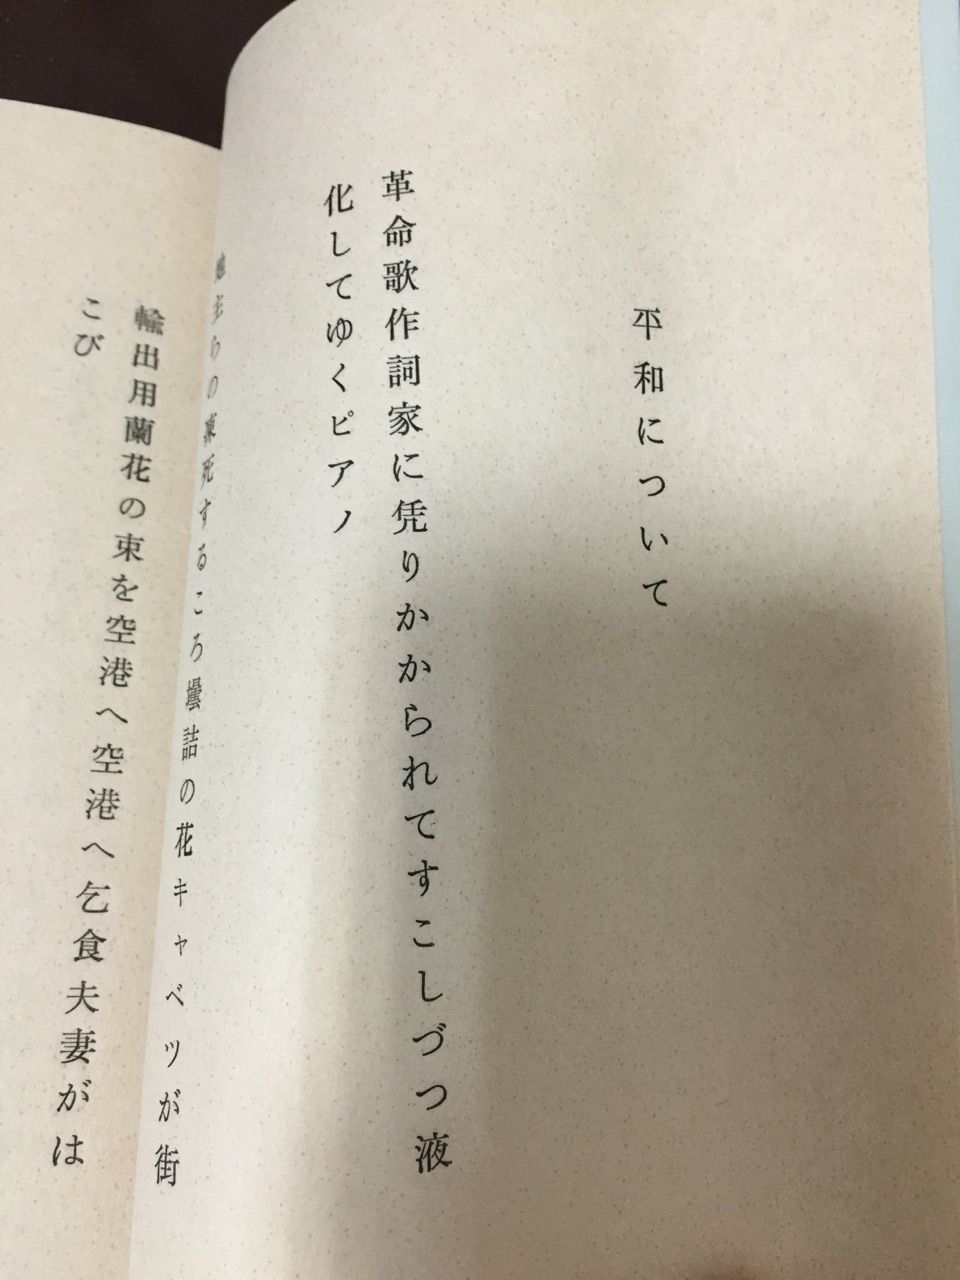 平和について
革命歌作詞家に凭りかかられてすこしづつ液
化してゆくピアノ
地主らの凍死するころ壜詰の花キャベツが街
輸出用蘭花の束を空港へ空港へ乞食夫妻がは
こび